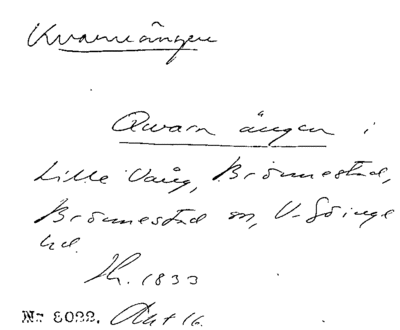 Kvarnängen
Qwarn ängen i
Lille Vång, Brönnestad,
Brönnestad sn, V. Göinge
hd.
1833
Nr 8022. Akt 16.